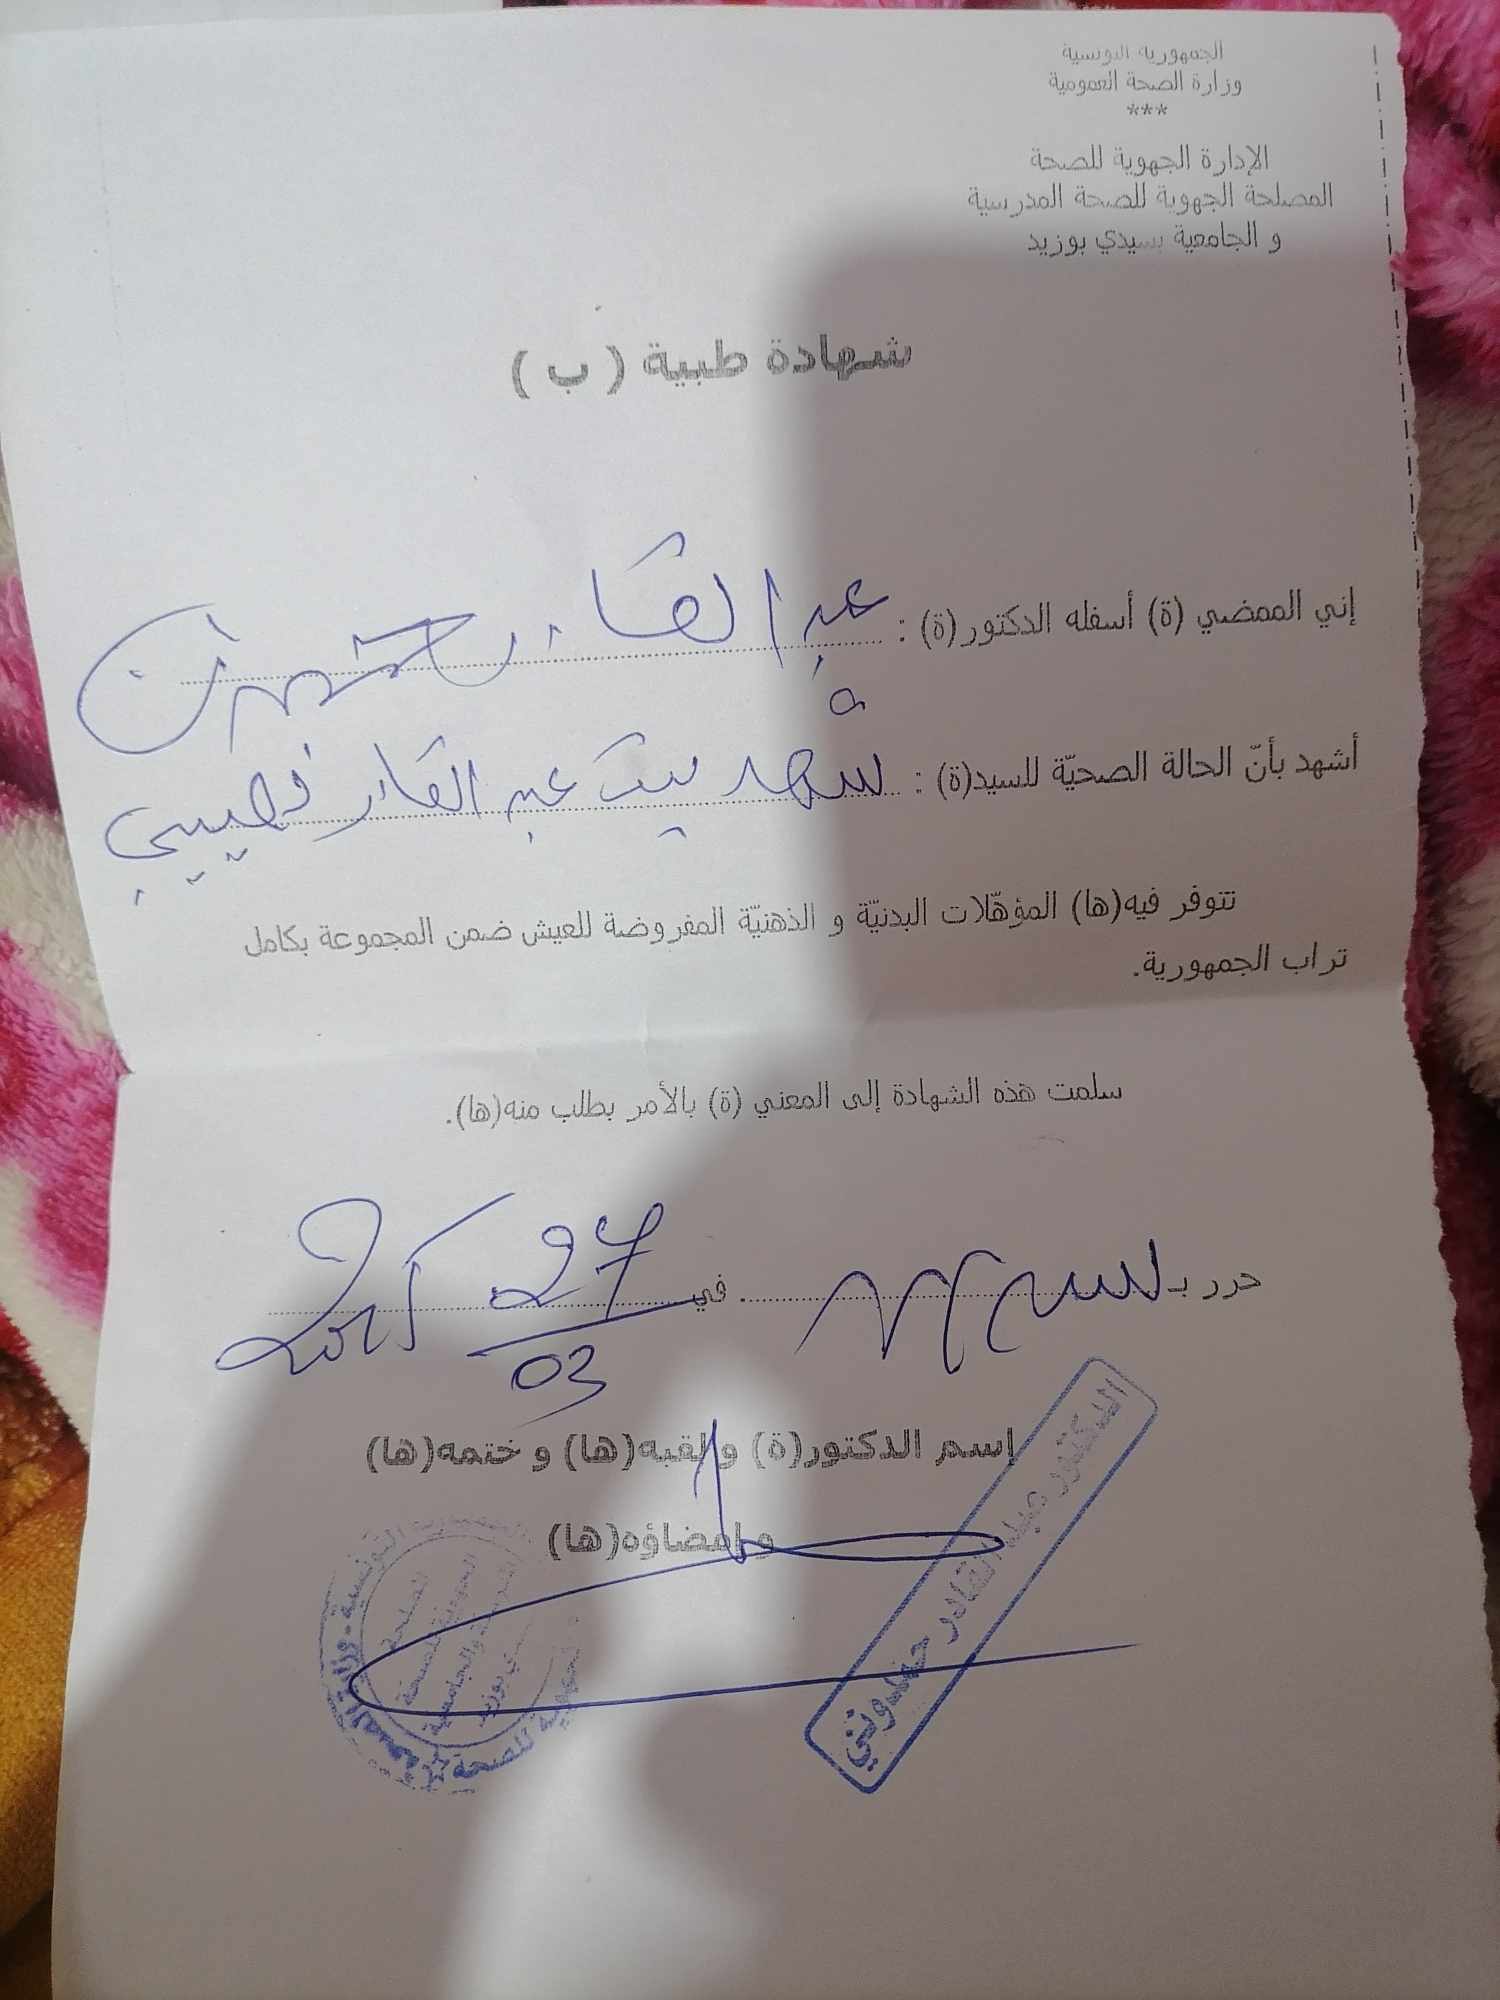 الجمهورية التونسية
وزارة الصحة العمومية
***
الإدارة الجهوية للصحة
المصلحة الجهوية للصحة المدرسية
و الجامعية بسيدي بوزيد
شهادة طبية ( ب )
إني الممضي (ة) أسفله الدكتور(ة) : عبد القادر
أشهد بأنّ الحالة الصحيّة للسيد(ة) : شهد بنت عبد القادر
تتوفر فيه(ها) المؤهّلات البدنيّة و الذهنيّة المفروضة للعيش ضمن المجموعة بكامل
تراب الجمهورية.
سلمت هذه الشهادة إلى المعني (ة) بالأمر بطلب منه(ها).
حرر بـ في 27 03 2025
إسم الدكتور(ة) و لقبه(ها) و ختمه(ها)
و إمضاؤه(ها)
الدكتور عبد القادر حمدوني